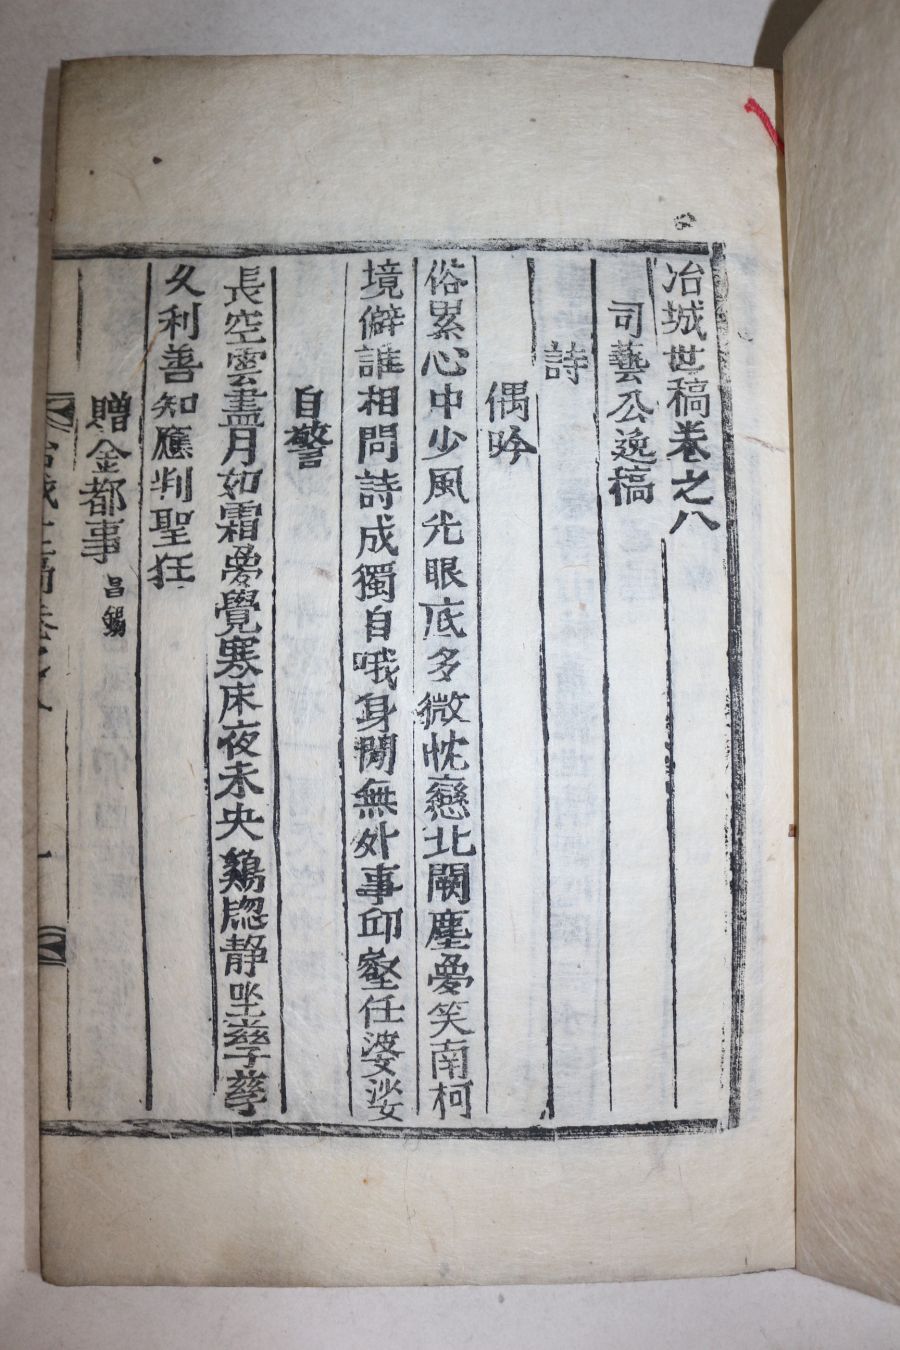 冶城世稿卷之八
司藝公逸稿
詩
偶吟
俗累心中少風光眼底多微忱戀北闕塵夢笑南柯
境僻誰相問詩成獨自哦身閒無外事丘壑任婆娑
自警
長空雲盡月如霜夢覺寒床夜未央鷄牎静坐孶孶
久利善知應判聖狂
贈金都事 昌錫